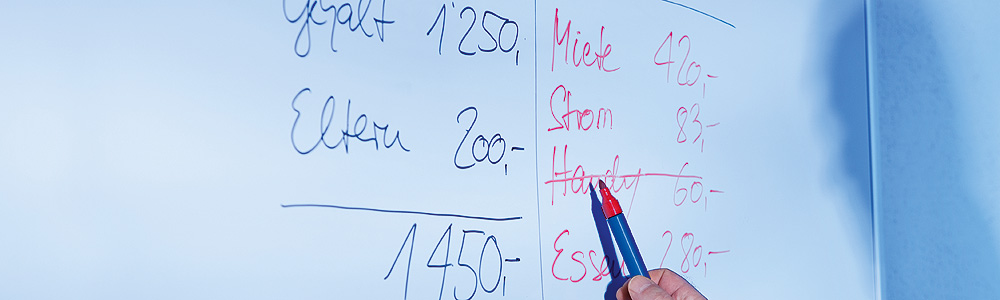 Gehalt 1250,
Eltern 200,-
1450,-
Miete 420,-
Strom 83,-
Handy 60,-
Essen 280,-